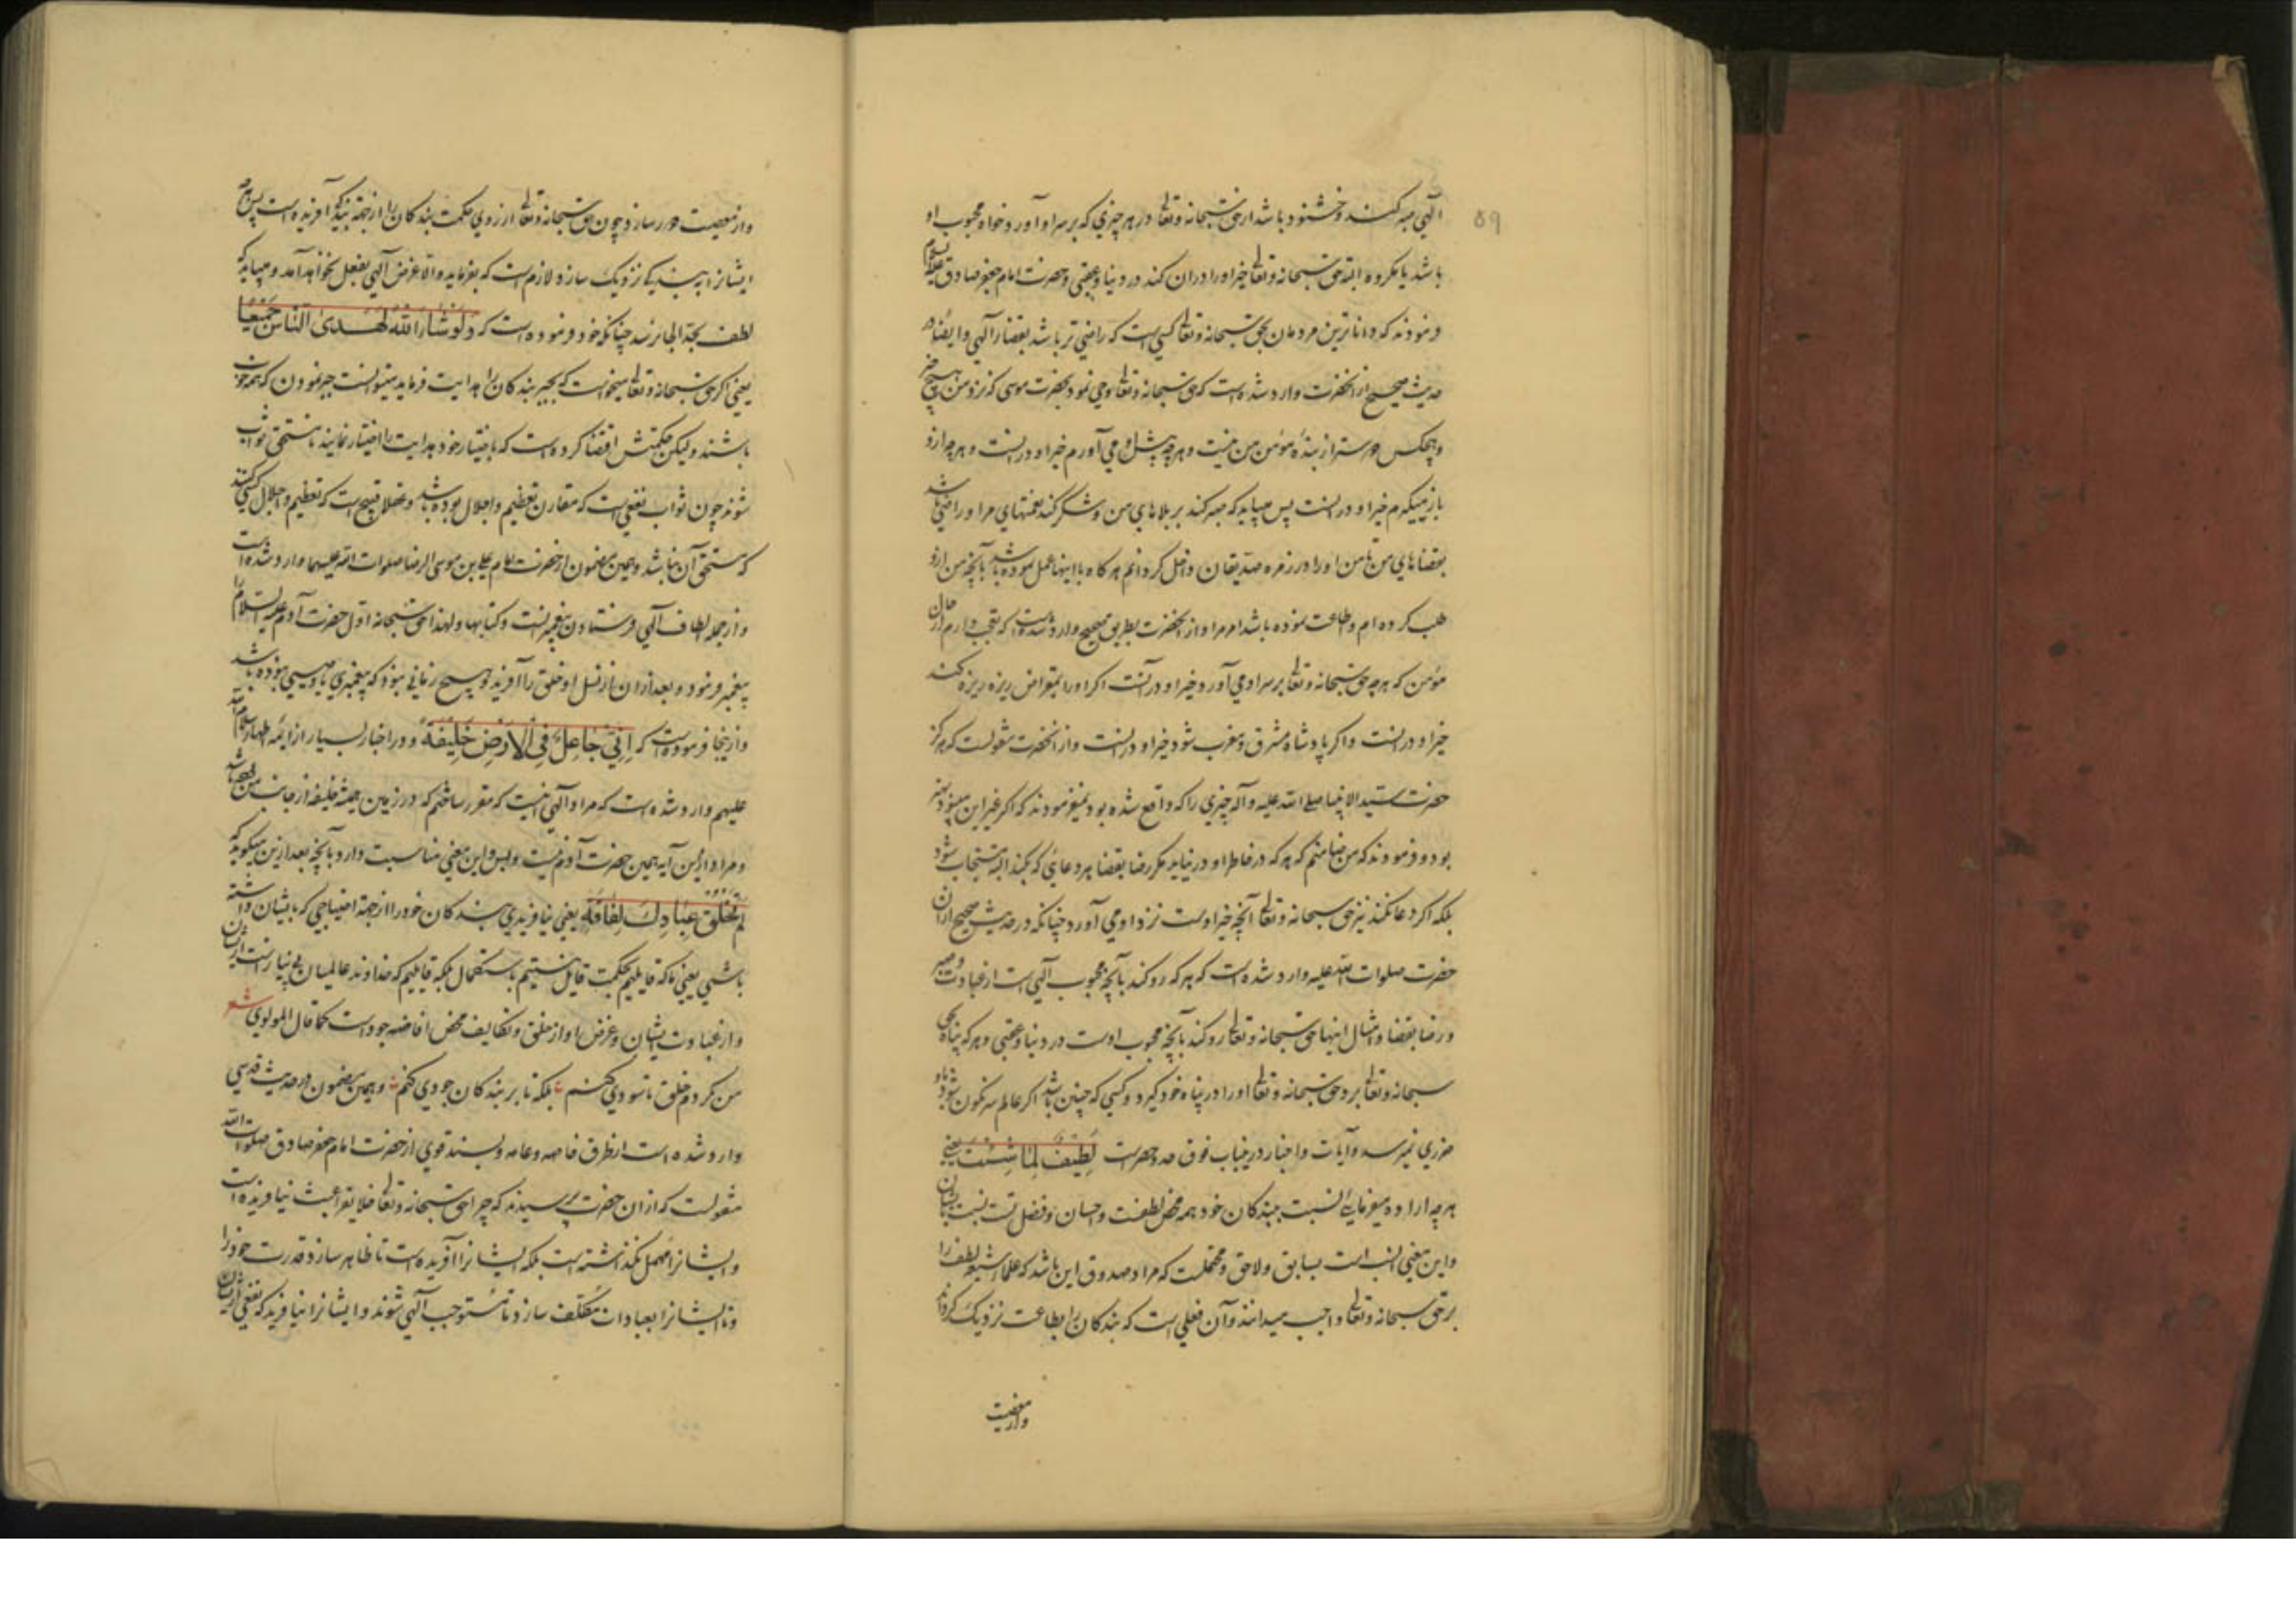 ۵۹
الهی صبر کند و خشنود باشد از حق سبحانه و تعالی در هر چیزی که بر سر او آورد خواه محبوب او
باشد یا مکروه البته حق سبحانه و تعالی خیر او را در ان کند در دنیا و عقبی و حضرت امام جعفر صادق علیه السلام
فرمودند که داناترین مردمان بحق سبحانه و تعالی کسی است که راضی تر باشد بقضاء الهی و ایضا در
حدیث صحیح از انحضرت وارد شده است که حق سبحانه و تعالی وحی نمود بحضرت موسی که نزد من هیچ چیز
و هیچکس دوستر از بنده مؤمن من نیست و هر چه پیش او می آورم خیر او در انست و هر چه ازو
باز میگیرم خیر او در انست پس میباید که صبر کند بر بلاهای من و شکر کند نعمتهای مرا و راضی باشد
بقضاهای من تا من او را در زمره صدیقان داخل کردانم هر کاه باینها عمل نموده باشد بآنچه من ازو
طلب کرده ام و اطاعت نموده باشد امر مرا و از انحضرت بطریق صحیح وارد شده است که تعجب دارم از حال
مؤمن که هر چه حق سبحانه و تعالی بر سر او می آورد خیر او در آنست اکر او را بمقراض ریزه ریزه کنند
خیر او در انست و اکر پادشاه مشرق و مغرب شود خیر او در انست و از انحضرت منقولست که هرکز
حضرت سید الانبیا صلی الله علیه و آله چیزی را که واقع شده بود نمیفرمودند که اکر غیر این میبود بهتر
بود و فرمودند که من ضامنم که هر که در خاطر او در نیاید مکر رضا بقضا هر دعایی که بکند البته مستجاب شود
بلکه اکر دعا نکند نیز حق سبحانه و تعالی آنچه خیر اوست نزد او می آورد چنانکه در حدیث صحیح از ان
حضرت صلوات الله علیه وارد شده است که هر که رو کند بآنچه محبوب الهی است از عبادت و صبر
و رضا بقضا و امثال اینها حق سبحانه و تعالی رو کند بآنچه محبوب اوست در دنیا و عقبی و هر که پناه بحق
سبحانه و تعالی برد حق سبحانه و تعالی او را در پناه خود کیرد و کسی که چنین باشد اکر عالم سرنکون شود باو
ضرری نمیرسد و آیات و اخبار درینباب فوق حد و حصرست لطیف لما شئت یعنی
هر چه اراده میفرمایی نسبت ببندکان خود همه محض لطفست و احسان و فضل تست نسبت بایشان
و این معنی انسب است بسابق و لاحق و محتملست که مراد صدوق این باشد که علماء شیعه لطف را
بر حق سبحانه و تعالی واجب میدانند و آن فعلی است که بندکان را بطاعت نزدیک کرداند
و از معصیت
و از معصیت دور سازد و چون حق سبحانه و تعالی از روی حکمت بندکان را از جهة بندکی آفریده است پس هر چه
ایشانرا ببندکی نزدیک سازد لازم است که بفرماید والا غرض الهی بفعل نخواهد آمد و میباید که
لطف بحد الجا نرسد چنانکه خود فرموده است که و لو شاء الله لهدی الناس جمیعا
یعنی اکر حق سبحانه و تعالی میخواست که بجبر بندکان را هدایت فرماید میتوانست جبر نمودن که همه خوب
باشند و لیکن حکمتش اقتضا کرده است که باختیار خود هدایت را اختیار نمایند تا مستحق ثواب
شوند چون ثواب نفعی است که مقارن تعظیم و اجلال بوده باشد و عقلا قبیح است که تعظیم و اجلال کسی کنند
که مستحق آن نباشد و همین مضمون از حضرت امام علی بن موسی الرضا صلوات الله علیهما وارد شده است
و از جمله الطاف الهی فرستادن پیغمبرانست و کتابها و لهذا حق سبحانه اول حضرت آدم علیه السلام را
پیغمبر فرمود و بعد از ان از نسل او خلق را آفرید و هیچ زمانی نبود که پیغمبری یا وصیی نبوده باشد
و ازینجا فرموده است که انی جاعل فی الارض خلیفة و در اخبار بسیار از ایمه اطهار سلام الله
علیهم وارد شده است که مراد الهی اینست که مقرر ساختم که در زمین همیشه خلیفه از جانب من بوده باشد
و مراد ازین آیه همین حضرت آدم نیست و بس و این معنی مناسبت دارد بآنچه بعد ازین میکوید که
لم تخلق عبادک لفاقة یعنی نیافریدی بندکان خود را از جهة احتیاجی که بایشان داشته
باشی یعنی نه آنکه قایلیم بحکمت قایل نیستیم باستکمال بلکه قایلیم که خداوند عالمیان بی نیاز است از ایشان
و از عبادت ایشان و غرض او از خلق و تکالیف محض افاضه جود است کما قال المولوی شعر
من نکردم خلق تا سودی کنم بلکه تا بر بندکان جودی کنم و همین مضمون در حدیث قدسی
وارد شده است از طرق خاصه و عامه و بسند قوی از حضرت امام جعفر صادق صلوات الله
منقولست که از ان حضرت پرسیدند که چرا حق سبحانه و تعالی خلایق را عبث نیافریده است
و ایشانرا مهمل نکذاشته است بلکه ایشانرا آفریده است تا ظاهر سازد قدرت خود را
و تا ایشانرا بعبادات مکلف سازد تا مستوجب الهی شوند و ایشانرا نیافرید که نفعی از ایشان